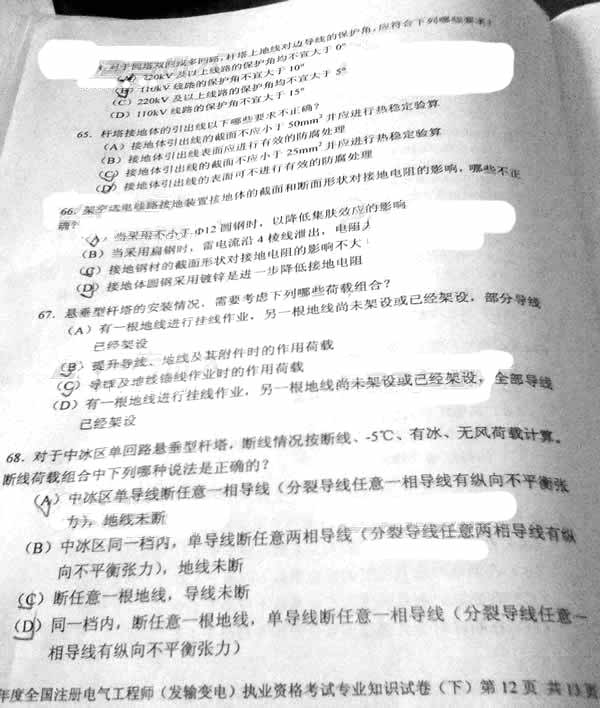 对于同塔双回或多回路，杆塔上地线对边导线的保护角，应符合下列哪些要求？
(A) 220kV 及以上线路的保护角均不宜大于 0°
(B) 110kV 线路的保护角不宜大于 10°
(C) 220kV 及以上线路的保护角均不宜大于 5°
(D) 110kV 线路的保护角不宜大于 15°
65. 杆塔接地体的引出线以下哪些要求不正确？
(A) 接地体引出线的截面不应小于 50mm² 并应进行热稳定验算
(B) 接地体引出线表面应进行有效的防腐处理
(C) 接地体引出线的截面不应小于 25mm² 并应进行热稳定验算
(D) 接地体引出线的表面可不进行有效的防腐处理
66. 架空送电线路接地装置接地体的截面和断面形状对接地电阻的影响，哪些不正
确？
(A) 当采用不小于 Φ12 圆钢时，以降低集肤效应的影响
(B) 当采用扁钢时，雷电流沿 4 棱线泄出，电阻
(C) 接地钢材的截面形状对接地电阻的影响不大
(D) 接地体圆钢采用镀锌是进一步降低接地电阻
67. 悬垂型杆塔的安装情况，需要考虑下列哪些荷载组合？
(A) 有一根地线进行挂线作业，另一根地线尚未架设或已经架设，部分导线
已经架设
(B) 提升导线、地线及其附件时的作用荷载
(C) 导线及地线锚线作业时的作用荷载
(D) 有一根地线进行挂线作业，另一根地线尚未架设或已经架设，全部导线
已经架设
68. 对于中冰区单回路悬垂型杆塔，断线情况按断线、-5℃、有冰、无风荷载计算。
断线荷载组合中下列哪种说法是正确的？
(A) 中冰区单导线断任意一相导线（分裂导线任意一相导线有纵向不平衡张
力），地线未断
(B) 中冰区同一档内，单导线断任意两相导线（分裂导线任意两相导线有纵
向不平衡张力），地线未断
(C) 断任意一根地线，导线未断
(D) 同一档内，断任意一根地线，单导线断任意一相导线（分裂导线任意一
相导线有纵向不平衡张力）
年度全国注册电气工程师（发输变电）执业资格考试专业知识试卷（下）第 12 页 共 13 页